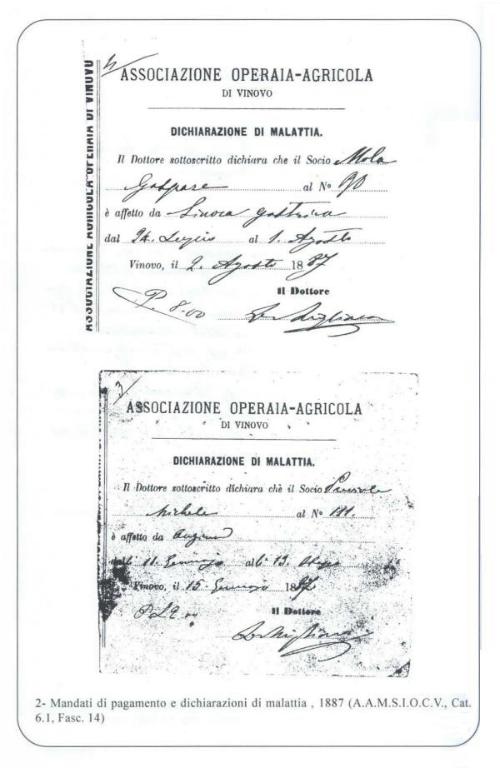 4
ASSOCIAZIONE OPERAIA-AGRICOLA
DI VINOVO
DICHIARAZIONE DI MALATTIA.
Il Dottore sottoscritto dichiara che il Socio Mola
Gaspare al N° 90
è affetto da gastrica
dal 24. Luglio al 1. Agosto
Vinovo, il 2. Agosto 1887
Il Dottore
P. 8.00
3
ASSOCIAZIONE OPERAIA-AGRICOLA
DI VINOVO
DICHIARAZIONE DI MALATTIA.
Il Dottore sottoscritto dichiara che il Socio
Michele al N° 111.
è affetto da
11. Gennajo al 13.
Vinovo, il 15. Gennajo 1887
Il Dottore
2- Mandati di pagamento e dichiarazioni di malattia , 1887 (A.A.M.S.I.O.C.V., Cat.
6.1, Fasc. 14)